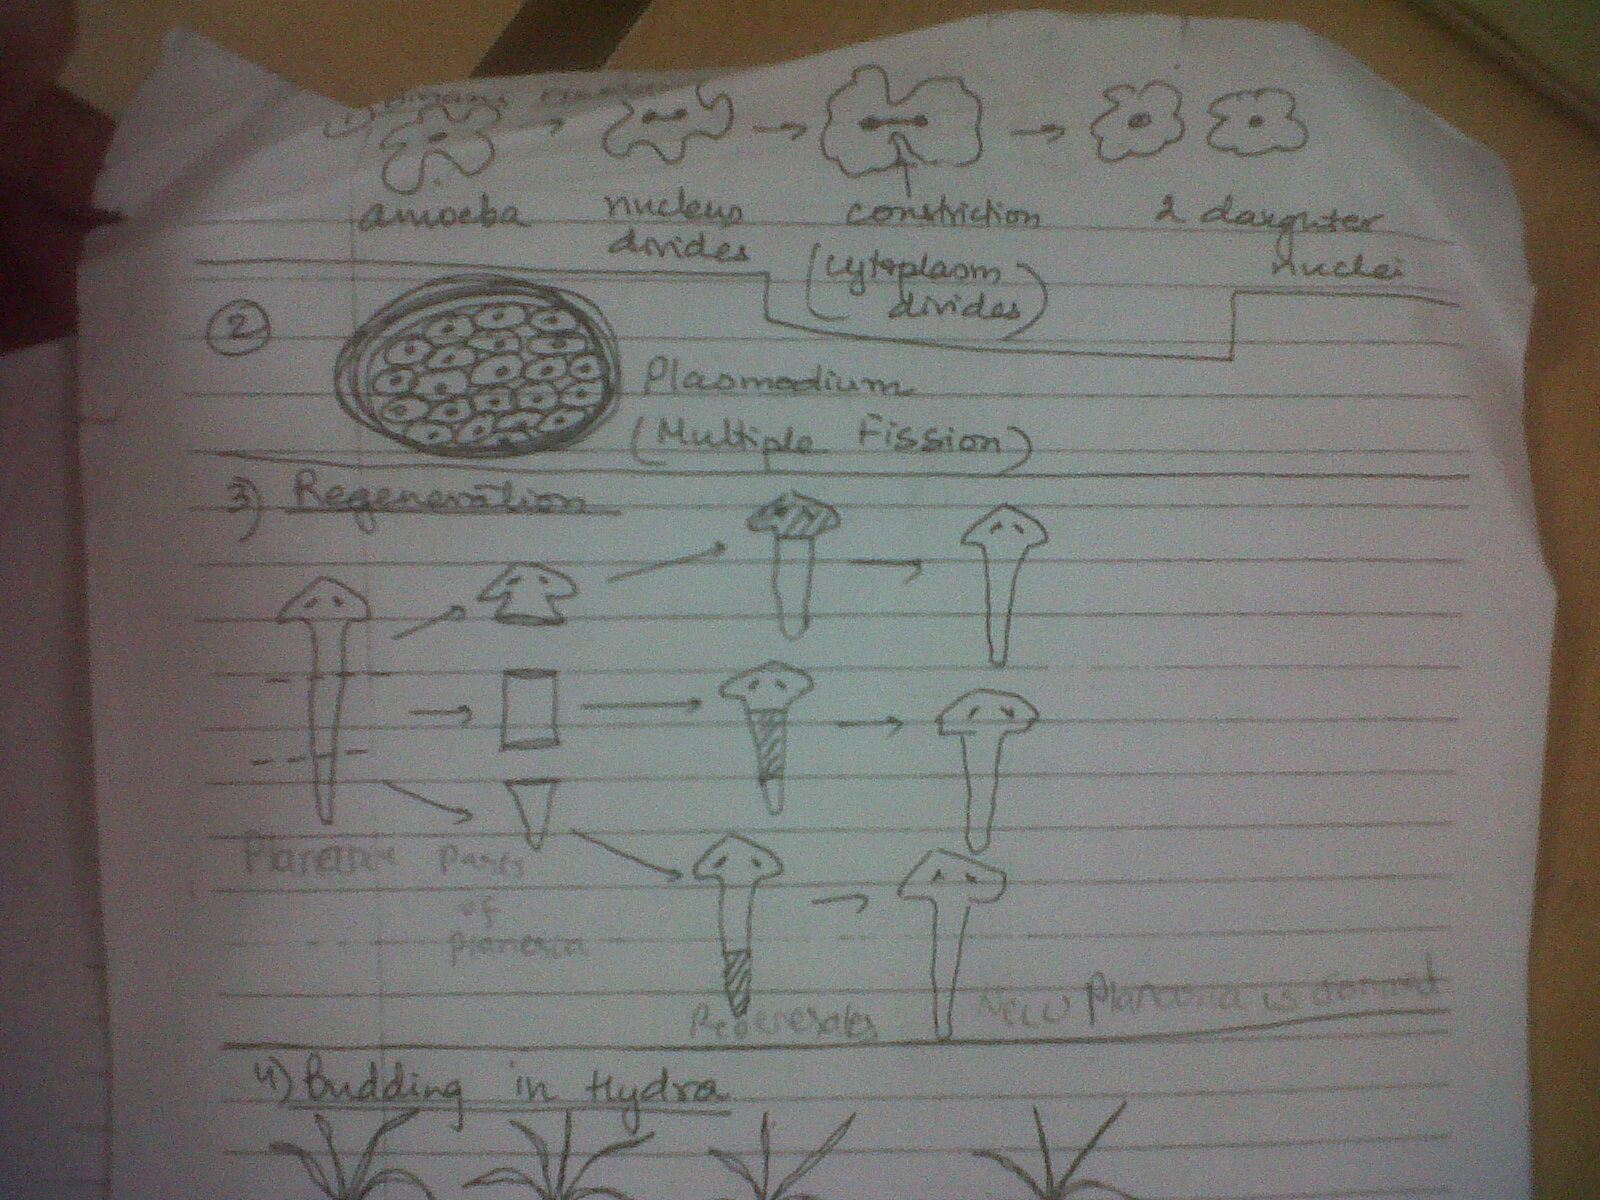 1) Binary Fission
amoeba
nucleus
divides
constriction
(cytoplasm
divides)
2 daughter
nuclei
2
Plasmodium
(Multiple Fission)
3) Regeneration
Planaria
Parts
of
planaria
Regenerates
New Planaria is formed
4) Budding in Hydra